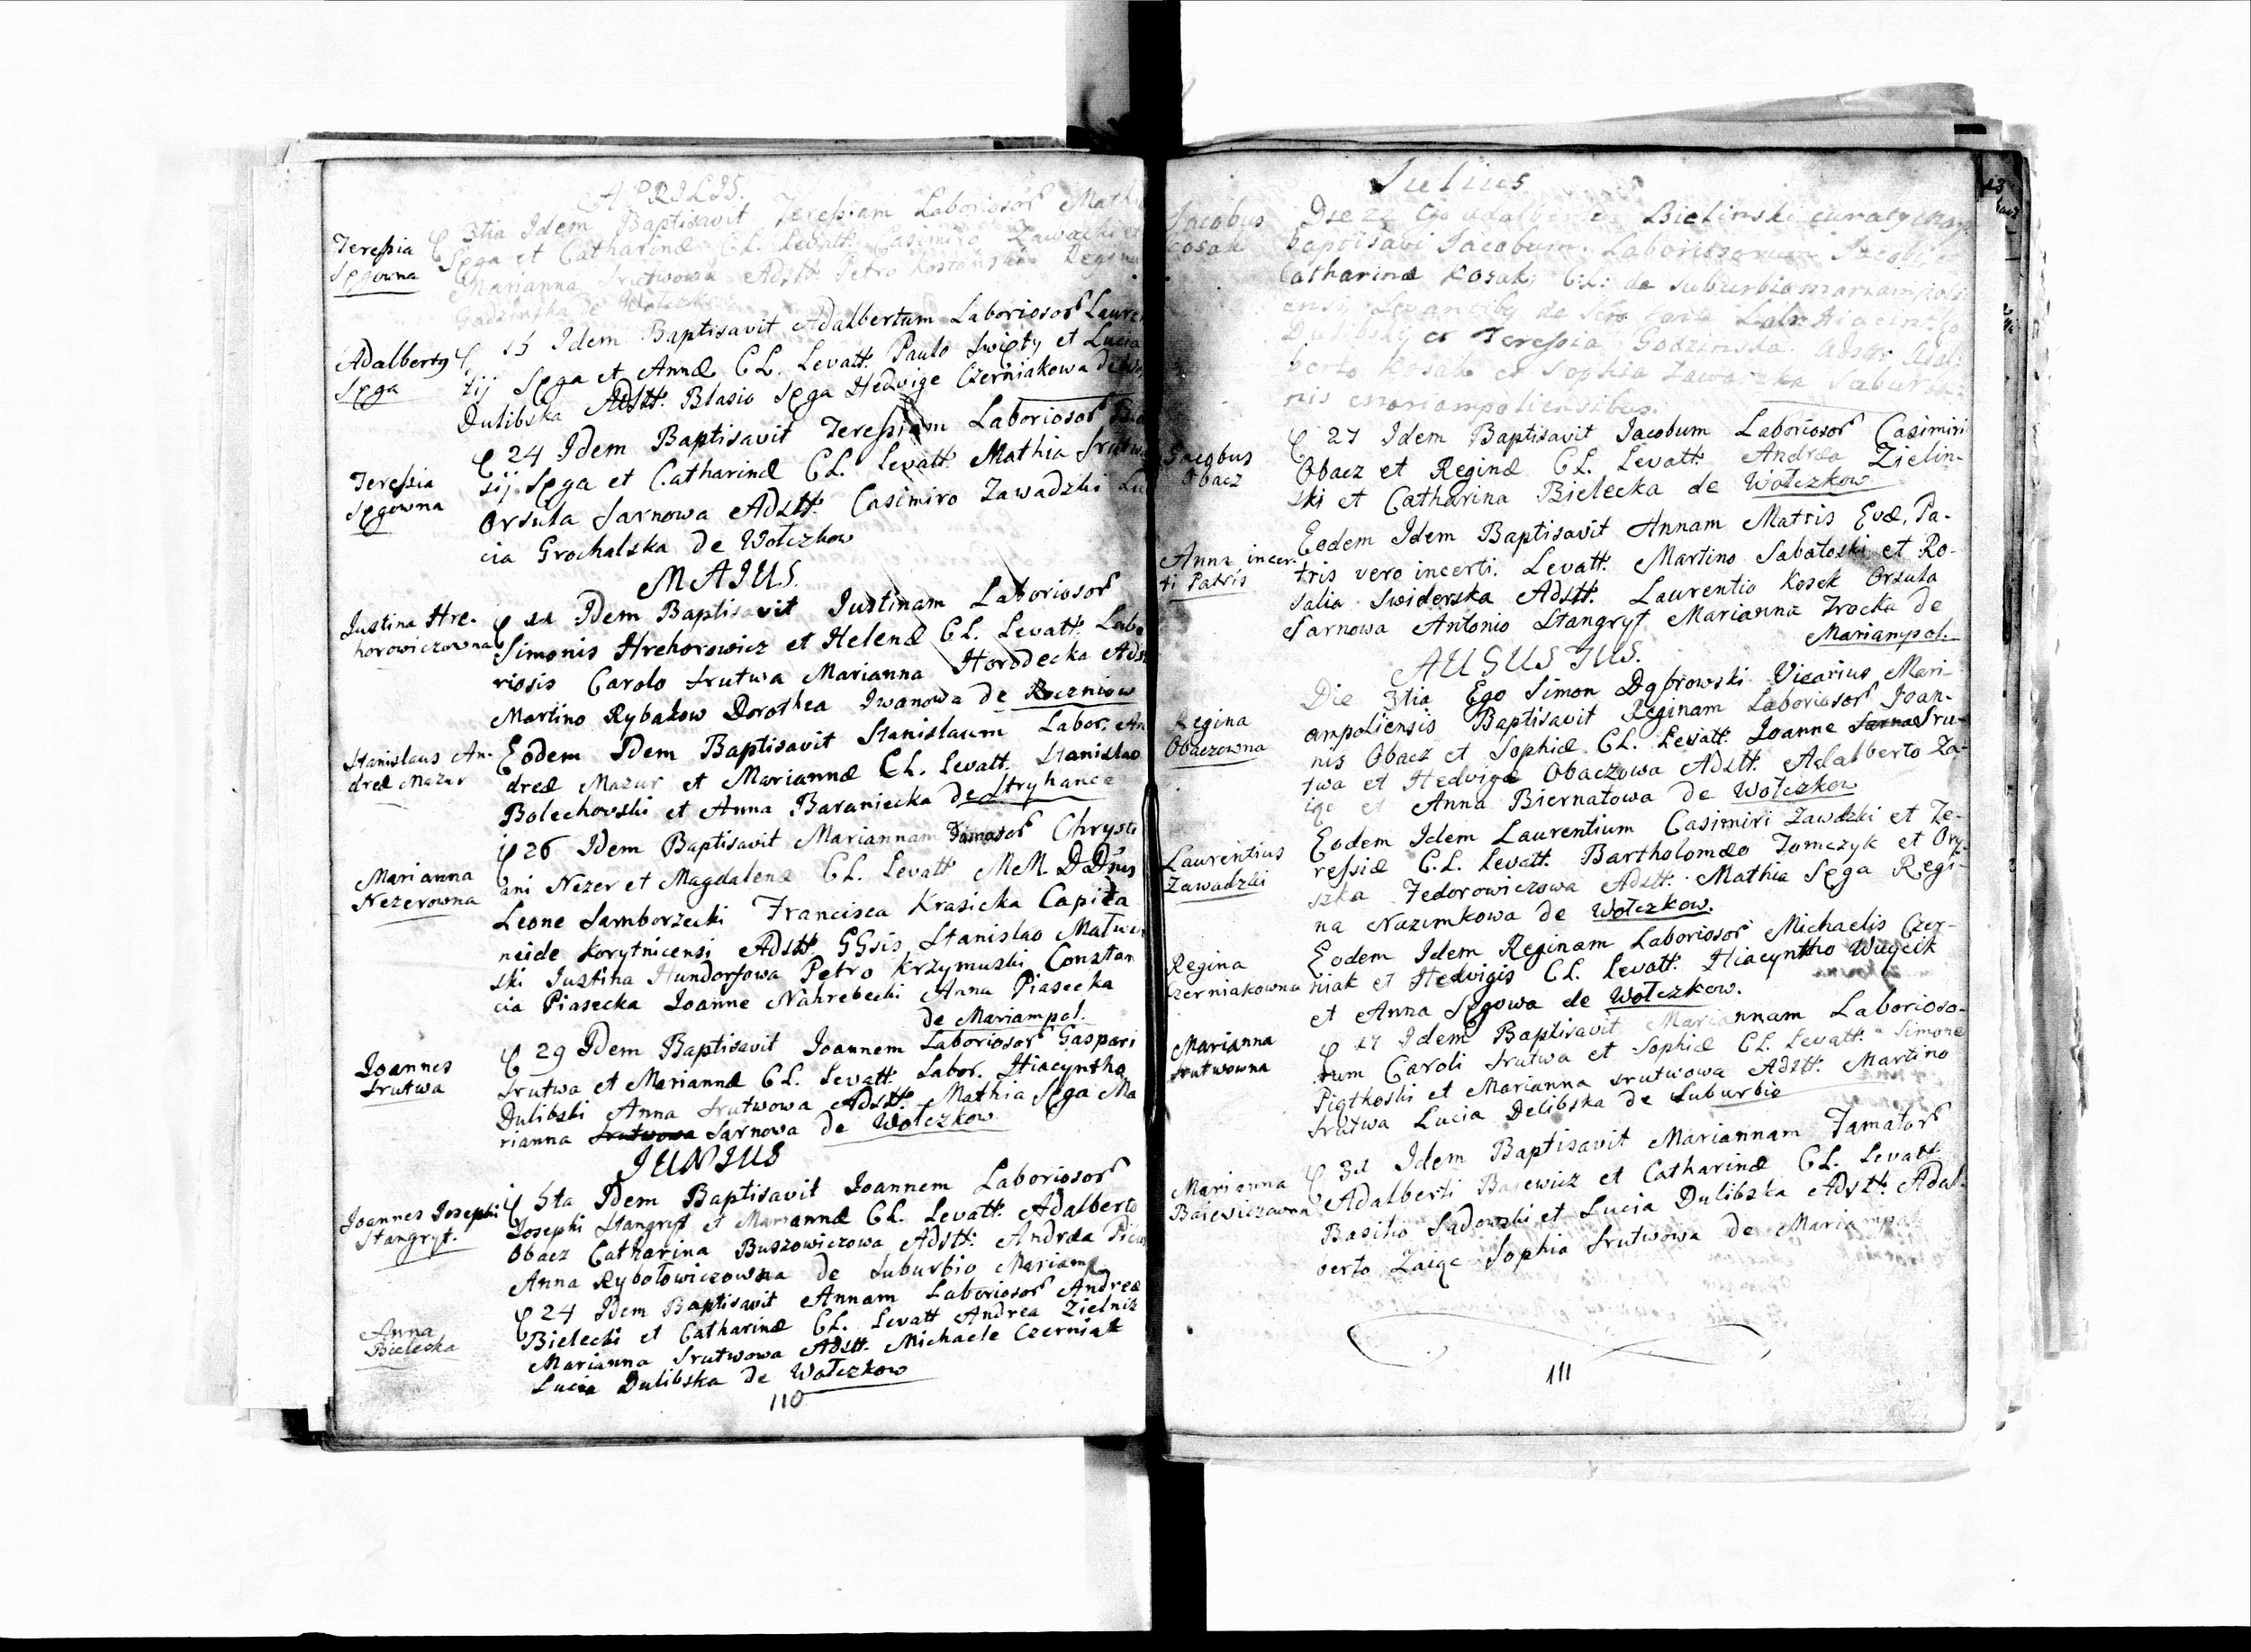 APRILIS.
Teressia
Sęgowna
3tia Idem Baptisavit Teressiam Laboriosor
Sęga et Catharinæ CL. Levatt. Casimiro Zawacki et
Marianna Srutwowa Adstt. Petro
Godzinska de Wołczkow
Adalbertg
Sęga
13 Idem Baptisavit Adalbertum Laboriosor
tij Sęga et Annæ CL. Levatt. Paulo Swięty et Lucia
Dulibska Adstt. Blasio Sęga Hedvige Czerniakowa
Teressia
Sęgowna
24 Idem Baptisavit Teressiam Laboriosor
sij Sęga et Catharinæ CL. Levatt. Mathia
Orsula Sarnowa Adstt. Casimiro Zawadzki Lu
cia Grochalska de Wołczkow
MAIUS.
Justina Hre-
horowiczowna
Idem Baptisavit Justinam Laboriosor
Simonis Hrehorowicz et Helenæ CL. Levatt. Labo
riosis Carolo Srutwa Marianna Horodecka Adst
Martino Rybakow Dorothea Iwanowa de
Stanislaus An-
dreæ Mazur
Eodem Idem Baptisavit Stanislaum Labor. An
dreæ Mazur et Mariannæ CL. Levatt. Stanislao
Bolechovski et Anna Baraniecka de Stryhance
Marianna
Nezerowna
26 Idem Baptisavit Mariannam Famator Chrysti
ani Nezer et Magdalenæ CL. Levatt MM. DDnis
Leone Samborzecki Francisca Krasicka Capita
neide Korytnicensi Adstt GGsis Stanislao
ski Justina Hundorfowa Petro Krzymuski Constan
cia Piasecka Joanne Nahrebecki Anna Piasecka
de Mariampol.
Joannes
Srutwa
29 Idem Baptisavit Joannem Laboriosor Gaspari
Srutwa et Mariannæ CL. Levatt. Labor. Hiacyntho
Dulibski Anna Srutwowa Adstt. Mathia Sęga Ma
rianna Srutwowa Sarnowa de Wołczkow
JUNIUS
Joannes Josephi
Stangryt.
5ta Idem Baptisavit Joannem Laboriosor
Josephi Stangryt et Mariannæ CL. Levatt. Adalberto
Obacz Catharina Buszowiczowa Adstt. Andrea
Anna Rybołowiczowna de Suburbio Mariamp
Anna
Bielecka
24 Idem Baptisavit Annam Laboriosor Andreæ
Bielecki et Catharinæ CL. Levatt Andrea
Marianna Srutwowa Adstt. Michaele Czerniak
Lucia Dulibska de Wołczkow
110
Julius
Jacobus
Kosak
Die Ego Bielinski
baptisavi Jacobum Laboriosorum Jacobi et
Catharinæ Kosak, CL. de suburbio mariampoli
ensi Levantibg de
Dulibskij et Teressia Godzinska Adstt. Adal-
berto Kosak et Sophia Zawaczka Suburba-
nis mariampoliensibus.
Jacobus
Obacz
27 Idem Baptisavit Jacobum Laboriosor Casimiri
Obacz et Reginæ CL. Levatt. Andrea Zielin-
ski et Catharina Bielecka de Wołczkow
Anna incer-
ti Patris
Eodem Idem Baptisavit Annam Matris Evæ, Pa-
tris vero incerti. Levatt. Martino Sabatoski et Ro-
salia Swiderska Adstt. Laurentio Kosek Orsula
Sarnowa Antonio Stangryt Marianna Trocka de
Mariampol.
AUGUSTUS.
Regina
Obaczowna
Die 3tia Ego Simon Dąbrowski Vicarius Mari-
ampoliensis Baptisavit Reginam Laboriosor Joan-
nis Obacz et Sophiæ CL. Levatt. Joanne Sarna Sru-
twa et Hedvige Obaczowa Adstt. Adalberto Za-
iąc et Anna Biernatowa de Wołczkow
Laurentius
Zawadzki
Eodem Idem Laurentium Casimiri Zawadzki et Te-
ressiæ C.L. Levatt. Bartholomæo Tomczyk et Ory-
szka Fedorowiczowa Adstt. Mathia Sęga Regi-
na Nazimkowa de Wołczkow.
Regina
Czerniakowna
Eodem Idem Reginam Laboriosor Michaelis Czer-
niak et Hedvigis CL. Levatt. Hiacyntho Wuycik
et Anna Sęgowa de Wołczkow.
Marianna
Srutwowna
Idem Baptisavit Mariannam Laborioso-
rum Caroli Srutwa et Sophiæ CL. Levatt. Simone
Piątkoski et Marianna Srutwowa Adstt. Martino
Srutwa Lucia Delibska de Suburbio
Marianna
Baiewiczowna
31 Idem Baptisavit Mariannam Famator
Adalberti Baiewicz et Catharinæ CL. Levatt
Basilio Sadowski et Lucia Dulibska Adstt. Adal-
berto Zaiąc Sophia Srutwowa de Mariampol
111